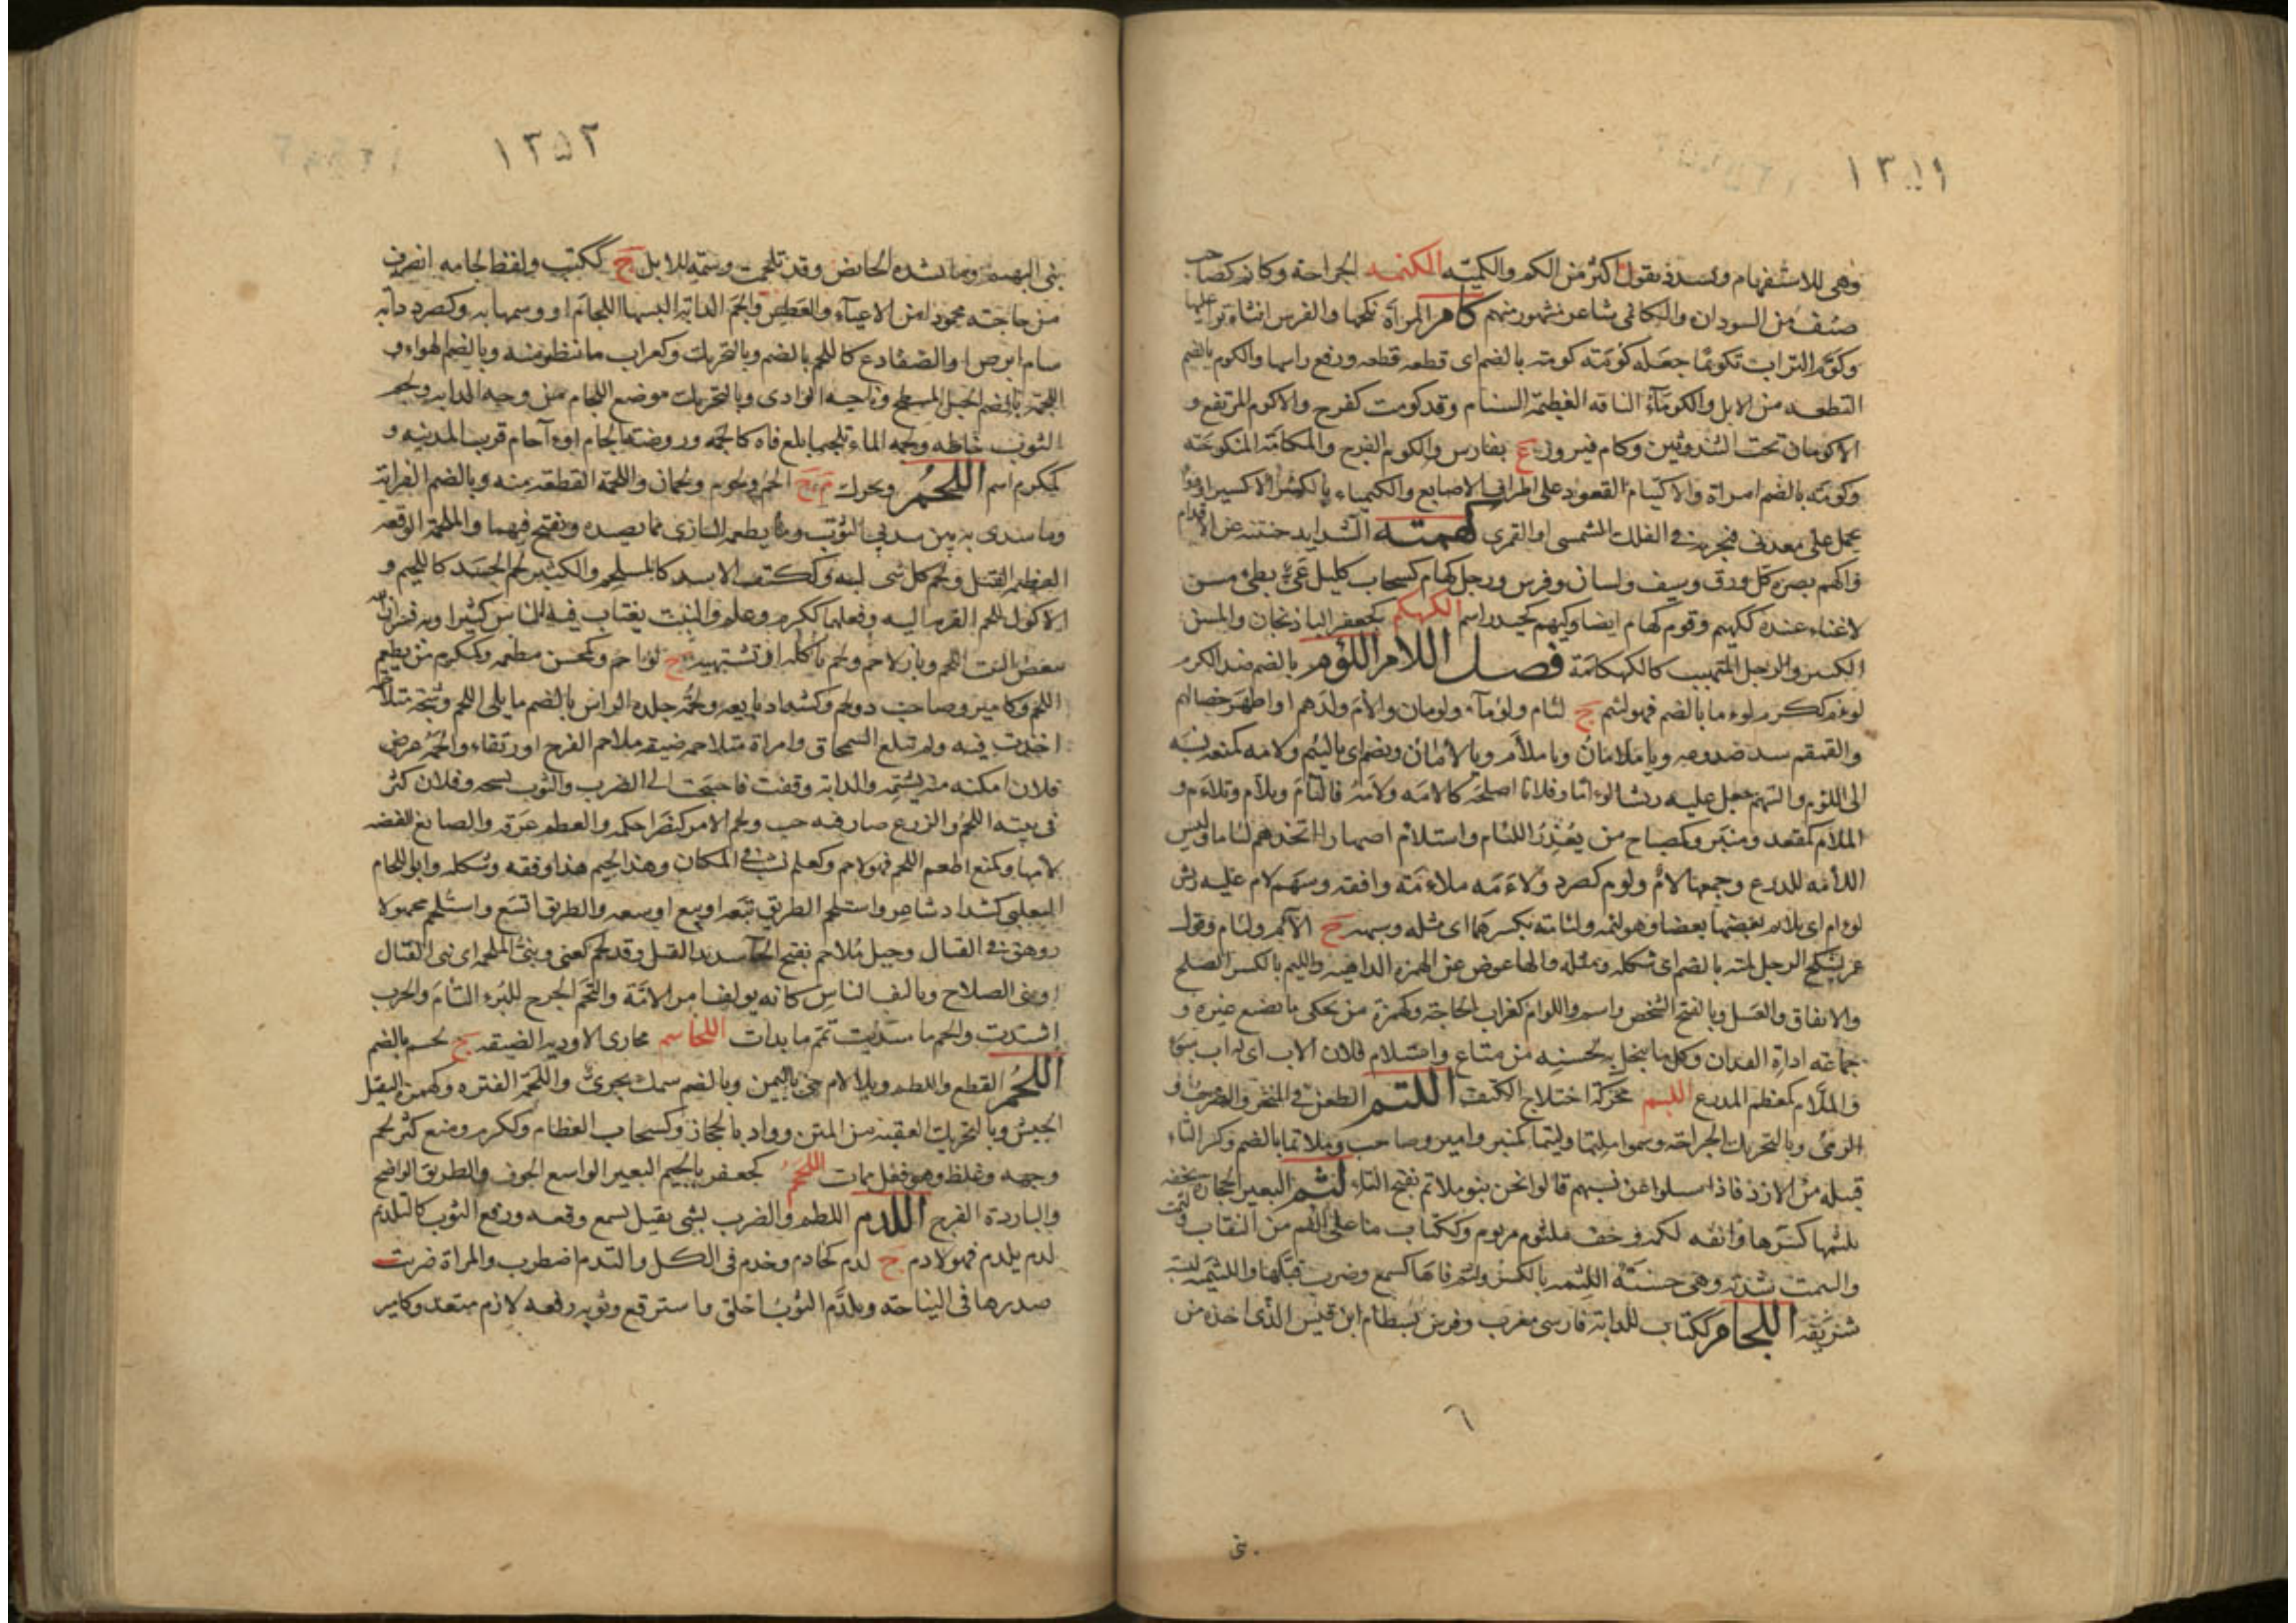 ١٣٥١
وهى للاستفهام وتشدد فتقول اكثر من الكم والكميّه الكنمه الجراحة وكانم كصاحب
صنف من السودان والكانمى شاعر مشهور منهم كام المراة نكحها والفرس انثاه نزا عليها
وكوّم التراب تكويمًا جعله كومَته كومته بالضم اى قطعه قطعه ورفع راسها والكوم بالضم
القطعه من الابل والكوماء الناقه العظيمة السنام وقد كومت كفرح والاكوم المرتفع و
الاكومان تحت الثندوتين وكام فيروز ع بفارس والكوم الفرج والمكامة المنكوحة
وكومة بالضم امراة والاكتيام القعود على اطراف الاصابع والكيمياء بالكسر الاكسير او دوا
يحمل على معدنى فيجريه فى الفلك الشمسى او القمرى كهمته الشدايد جبنته عن الاقدام
واكهم بصره كل ورق وسيف ولسان وفرس ورجل كهام كسحاب كليل عَىّ بطىء مسن
لاغناء عنده ككهيم وقوم كهام ايضا وكيهم كحيدر اسم الكهكم كجعفر الباذنجان والمسن
الكبير والرجل المتهيب كالكهكامة فصل اللام اللؤم بالضم ضد الكرم
لؤم ككرم لوءما بالضم فهو لئيم ج لئام ولؤماء ولومان والام ولدهم او اظهر خصالهم
والقمقم سد صدوعه ويا ملامان ويا ملأم ويا لأمان ويضم اى يا لئيم ولامه كمنعه نسبه
الى اللؤم والسهم جعل عليه ريشا لؤاما وفلانا اصلحه كالامه ولأمه فالتأم وتلأم وتلاءم و
الملأم كمقعد ومنبر ومصباح من يعذر اللئام واستلأم اصهارا اتخذهم لئاما ولبس
اللأمه للدرع وجمعها لأم ولوم كصرد ولاءمه ملاءمة وافقه وسهم لام عليه ريش
لوءام اى يلائم بعضها بعضا وهو لئمه ولئامته بكسرهما اى مثله وشبهه ج الآم ولئام وقول
عمر لينكح الرجل لمته بالضم اى شكله ومثله والهاء عوض عن الهمزة الذاهبه واللئيم بالكسر الصلح
والاتفاق والعسل وبالفتح الشخص واسم واللوام كغراب الحاجة وكهمزة من يحكى ما يصنع غيره و
جماعة اداة الفدان وكل ما يبخل به لحسنه من متاع واستلام فلان الاب اى له اب سوء
والملأم كمعظم المدرع اللبم محركة اختلاج الكتف اللتم الطعن فى المنخر والضرب و
الرمى وبالتحريك الجراحة وسموا ملتما ولتيما كمنبر وامير وصاحب وملاتما بالضم وكسر التاء
قبيله من الازد فاذا سيلوا عن نسبهم قالوا نحن بنو ملاتم بفتح التاء لثم البعير الحجارة بخفه
يلثمها كسرها وانفه لكمه وخف ملثوم مرثوم وككتاب ما على الفم من النقاب ولثمت
والتثمت شدته وهى حسنة اللثمه بالكسر ولثم فاها كسمع وضرب قبلها واللثيمه لبسة
شنزيقه اللجام ككتاب للدابة فارسى معرب وفرس بسطام ابن قيس الذى اخذه من
٦
بنى
١٣٥٢
بنى الهجيم وما تشده الحائض وقد تلجمت وسمة للابل ج ككتب ولفظ لجامه انصرف
من حاجته مجهودا من الاعياء والعطش والجم الدابة البسها اللجام او وسمها به وكصرد دابه
سام ابرص او الضفادع كاللجم بالضم وبالتحريك وكغراب ما تتطير منه وبالضم الهواء و
اللجمة بالضم الجبل المسطح وناحيه الوادى وبالتحريك موضع اللجام من وجه الدابه ولجم
الثوب خاطه ولجمه الماء تلجيما بلغ فاه كالجمه وروضة الجام او آجام قرب المدينه و
كمكرم اسم اللحم ويحرك م ج الحم ولحوم ولحمان واللحمة القطعه منه وبالضم القرابة
وما سدى به بين سديى الثوب وما يطعمه البازى مما يصيده ويفتح فيهما والملحمة الوقعه
العظيمه القتل ولحم كل شى لبه وككتف الاسد كالمستلحم والكثير لحم الجسد كاللحيم و
الاكول للحم القرم اليه وفعلهما ككرم وعلم والبيت يغتاب فيه الناس كثيرا وبه فسر ان الله
يبغض البيت اللحم وباز لاحم ولحم ياكله او تشتهيه ج لواحم وكمحسن مطعمه وكمكرم من يطعم
اللحم وكامير وصاحب ذو لحم وكشداد بايعه ولحمة جلده الراس بالضم ما يلى اللحم وشجة متلاحمه
اخذت فيه ولم تبلغ السمحاق وامراة متلاحمه ضيقه ملاحم الفرج او رتقاء والحمه عرض
فلان امكنه منه يشتمه والدابة وقفت فاحتجت الى الضرب والثوب نسجه وفلان كثر
فى بيته اللحم والزرع صار فيه حب ولحم الامر كنصر احكمه والعظم عرقه والصائغ الفضه
لأمها وكمنع اطعم اللحم فهو لاحم وكعلم نشب فى المكان وهذا لحيم هذا وفقه وشكله وابو اللحام
التغلبى كشداد شاعر واستلحم الطريق تبعه او تبع اوسعه والطريق اتسع واستلحم مجهولا
روهق فى القتال وحبل ملاحم بفتح الحاء شديد الفتل وقد لحم كعنى ونبى الملحمه اى نبى القتال
او نبى الصلاح وتاليف الناس كانه يولف امر الامّة والتحم الجرح للبرء التام والحرب
اشتدت والحم ما سديت تمم ما بدات اللحاسم مجارى الاودية الضيقه ج لحسم بالضم
اللخم القطع واللطم وبلا لام حى باليمن وبالضم سمك بحرى واللخمة الفتره وكهمزة الثقيل
الجبس وبالتحريك العقبه من المتن وواد بالحجاز وكسحاب العظام وككرم ومنع كثر لحم
وجهه وغلظ وهو فعل ممات اللخجم كجعفر بالجيم البعير الواسع الجوف والطريق الواضح
والباردة الفرج اللدم اللطم والضرب بشى ثقيل يسمع وقعه ورقع الثوب كالتلديم
لدم يلدم فهو لادم ج لدم كخادم وخدم فى الكل والتدم اضطرب والمراة ضربت
صدرها فى النياحة وتلدّم الثوب اخلق واسترقع وثوبه رقعه لازم متعد وكامير